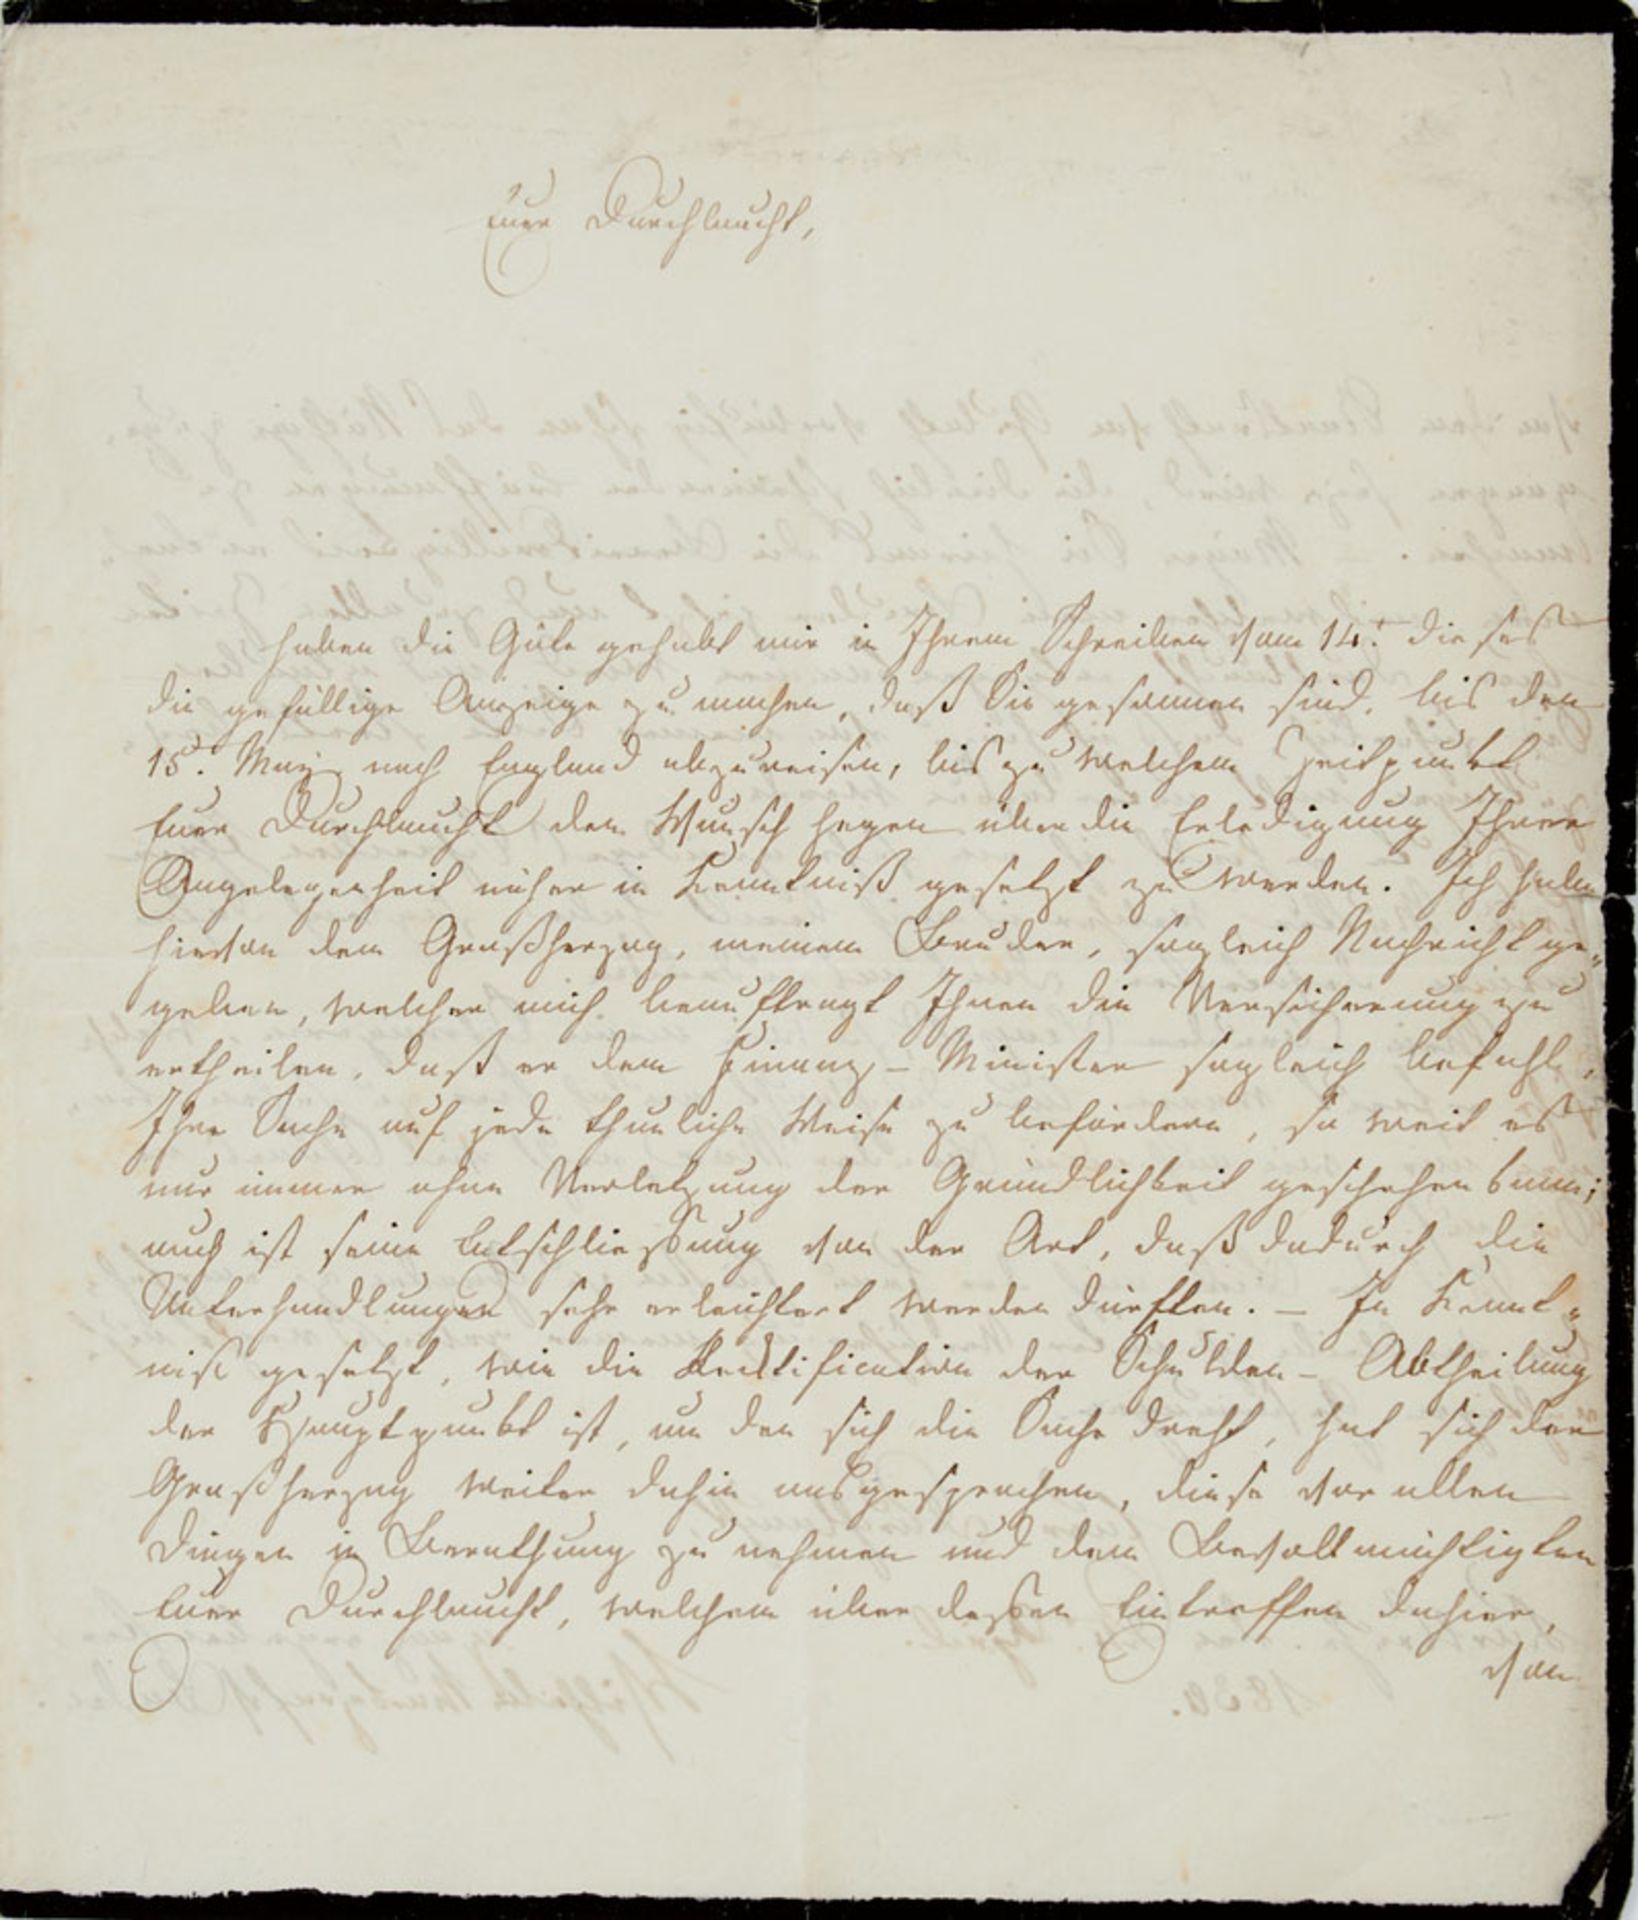 Euer Durchlaucht,
haben die Güte gehabt mir in Ihrem Schreiben vom 14t. dieses
die gefällige Anzeige zu machen, daß Sie gesonnen sind, bis den
15t. May nach England abzureisen, bis zu welchem Zeitpunkt
Euer Durchlaucht den Wunsch hegen über die Erledigung Ihrer
Angelegenheit näher in Kenntniß gesetzt zu werden. Ich habe
hievon dem Großherzog, meinem Bruder, sogleich Nachricht ge„
geben, welcher mich beauftragt Ihnen die Versicherung zu
ertheilen, daß er dem Finanz-Minister sogleich befahl,
Ihre Sache auf jede thunliche Weise zu befördern, so weit es
nur immer ohne Verletzung der Gründlichkeit geschehen kann;
auch ist seine Entschließung von der Art, daß dadurch die
Unterhandlungen sehr erleichtert werden dürften. – In Kennt„
niß gesetzt, wie die Rectification der Schulden-Abtheilung
der Hauptpunkt ist, um den sich die Sache dreht, hat sich der
Großherzog weiter dahin ausgesprochen, diese vor allen
Dingen in Berathung zu nehmen und dem Bevollmächtigten
Euer Durchlaucht, welchem über dessen Eintreffen dahier,
von